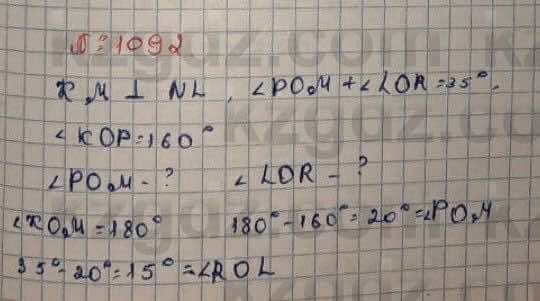 № 1092
KM ⊥ NL, ∠POM + ∠LOR = 35°,
∠KOP = 160°
∠POM - ? ∠LOR - ?
∠KOM = 180° 180° - 160° = 20° = ∠POM
35° - 20° = 15° = ∠ROL